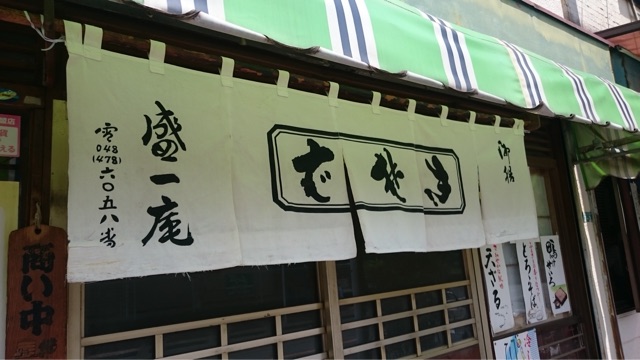 御膳
生そば
盛一庵
電 048 (478) 六〇五八番
商い中
鴨せいろ
とろろそば
天ざる